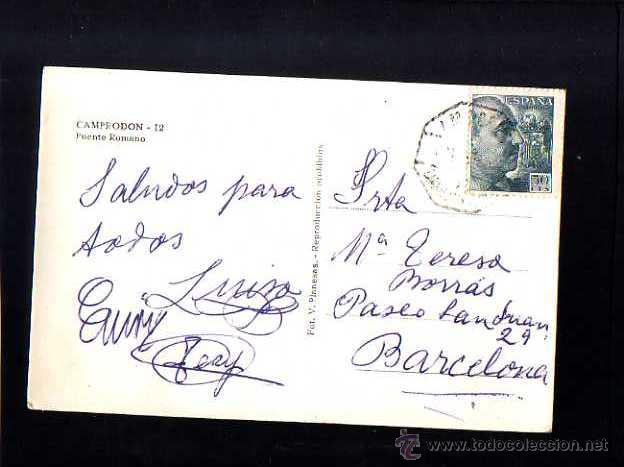 CAMPRODON - 12
Puente Romano
Saludos para
todos
Luisa
Fot. V. - Reproducción prohibida
ESPAÑA
Srta
Mª Teresa
Borrás
Paseo San Juan
29
Barcelona
todocoleccion
www.todocoleccion.net